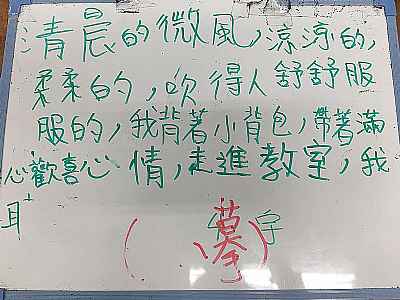 清晨的微風,涼涼的,
柔柔的,吹得人舒舒服
服的,我背著小背包,帶著滿
心歡喜心情,走進教室,我
耳
( 字)